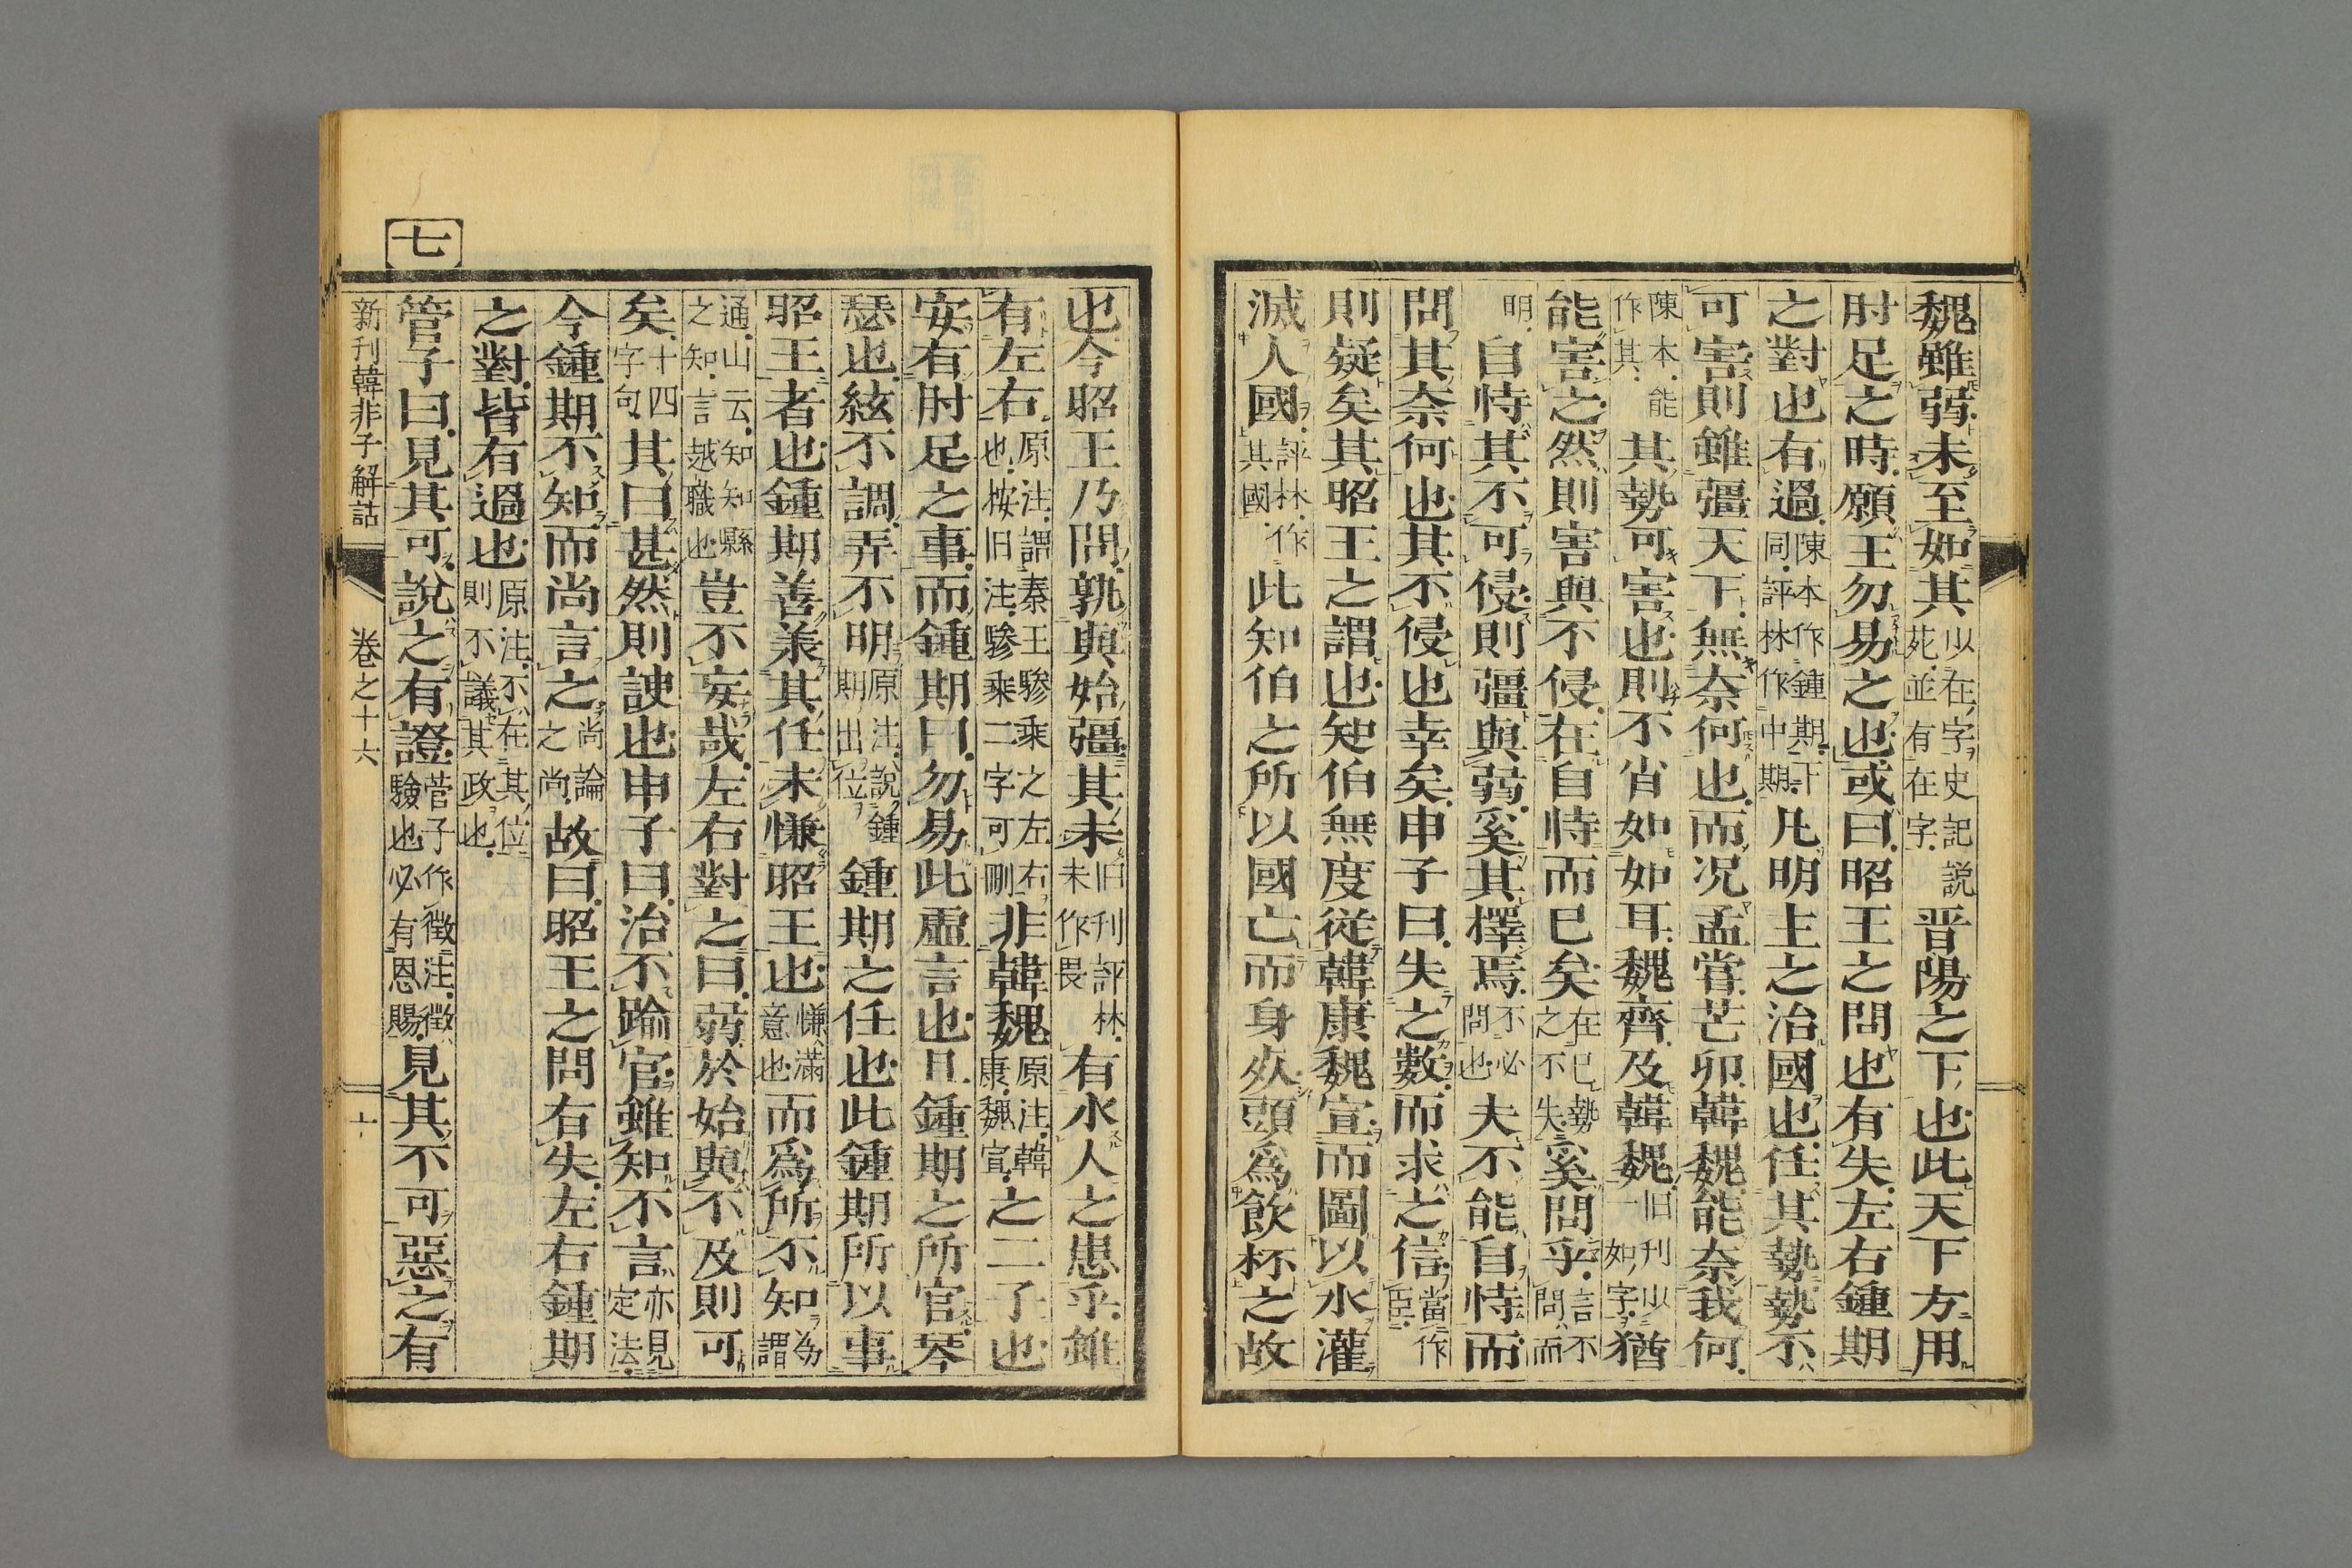 魏雖弱未至如其以在字史記説苑並有在字晋陽之下也此天下方用
肘足之時願王勿易之也或曰昭王之問也有失左右鍾期
之對也有過陳本作鍾期下同評林作中期凡明主之治國也任其勢勢不
可害則雖彊天下無奈何也而况孟甞芒卯韓魏能奈我何
陳本能作其其勢可害也則不肖如如耳魏齊及韓魏旧刊少一如字猶
能害之然則害與不侵在自恃而已矣在已勢之不失奚問乎言不問而
明自恃其不可侵則彊與弱奚其擇焉不必問也夫不能自恃而
問其奈何也其不侵也幸矣申子曰失之數而求之信當作臣
則疑矣其昭王之謂也知伯無度從韓康魏宣而圖以水灌
滅人國評林作其國此知伯之所以國亡而身死頭爲飲杯之故
也今昭王乃問孰與始彊其未旧刊評林未作畏有水人之患乎雖
有左右原注謂秦王驂乗之左右也桉旧注驂乗二字可刪非韓魏原注韓康魏宣之二子也
安有肘足之事而鍾期曰勿易此虛言也且鍾期之所官琴
瑟也絃不調弄不明原注説鍾期出位鍾期之任也此鍾期所以事
昭王者也鍾期善羕其任未慊昭王也慊滿意也而爲所不知為謂
通山云知知縣之知言越職也豈不妄哉左右對之曰弱於始與不及則可
矣十四字句其曰甚然則諛也申子曰治不踰官雖知不言亦見定法
今鍾期不知而尚言之尚論之尚故曰昭王之問有失左右鍾期
之對皆有過也原注不在其位則不議其政也
管子曰見其可說之有證菅子作徴注徴驗也必有恩賜見其不可惡之有
七
新刊韓非子解詁
卷之十六
十